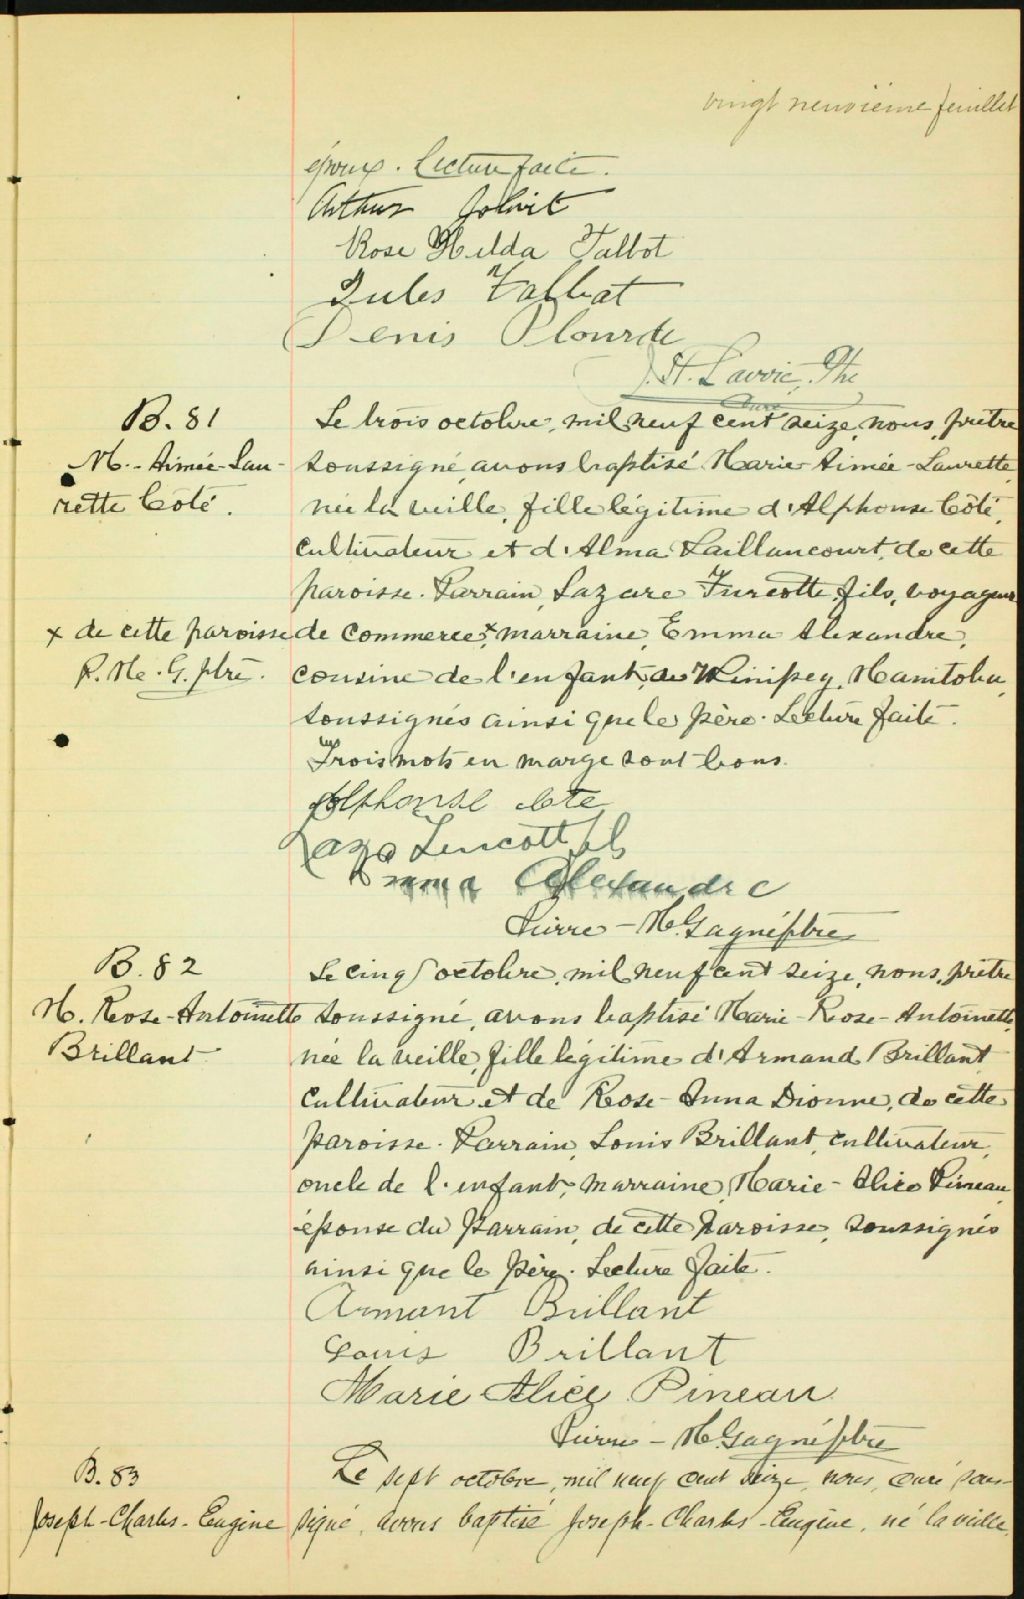 vingt neuvième feuillet
époux. Lecture faite.
Arthur Jolivet
Rose Hilda Talbot
Jules Talbot
Denis Plourde
J. H. Lavoie, Ptre
Curé
B. 81
M.-Aimée-Lau-
rette Côté.
Le trois octobre, mil neuf cent seize, nous, prêtre
soussigné, avons baptisé Marie-Aimée-Laurette,
née la veille, fille légitime d'Alphonse Côté,
cultivateur et d'Alma Vaillancourt, de cette
paroisse. Parrain, Lazare Turcotte, fils, voyageur
x de cette paroisse
P. M. G. ptre.
de commerce,x marraine, Emma Alexandre,
cousine de l'enfant, de Winipeg, Manitoba,
soussignés ainsi que le père. Lecture faite.
Trois mots en marge sont bons.
Alphonse Cote
Laza Turcott fils
Emma Alexandre
Pierre-M. Gagné, ptre
B. 82
M. Rose-Antoinette
Brillant
Le cinq octobre, mil neuf cent seize, nous, prêtre
soussigné, avons baptisé Marie-Rose-Antoinette,
née la veille, fille légitime d'Armand Brillant
cultivateur et de Rose-Anna Dionne, de cette
paroisse. Parrain, Louis Brillant, cultivateur,
oncle de l'enfant, marraine, Marie-Alice Pineau,
épouse du parrain, de cette paroisse, soussignés
ainsi que le père. Lecture faite.
Armant Brillant
Louis Brillant
Marie Alice Pineau
Pierre-M. Gagné, ptre
B. 83
Joseph-Charles-Eugène
Le sept octobre, mil neuf cent seize, nous, curé sous-
signé, avons baptisé Joseph-Charles-Eugène, né la veille,